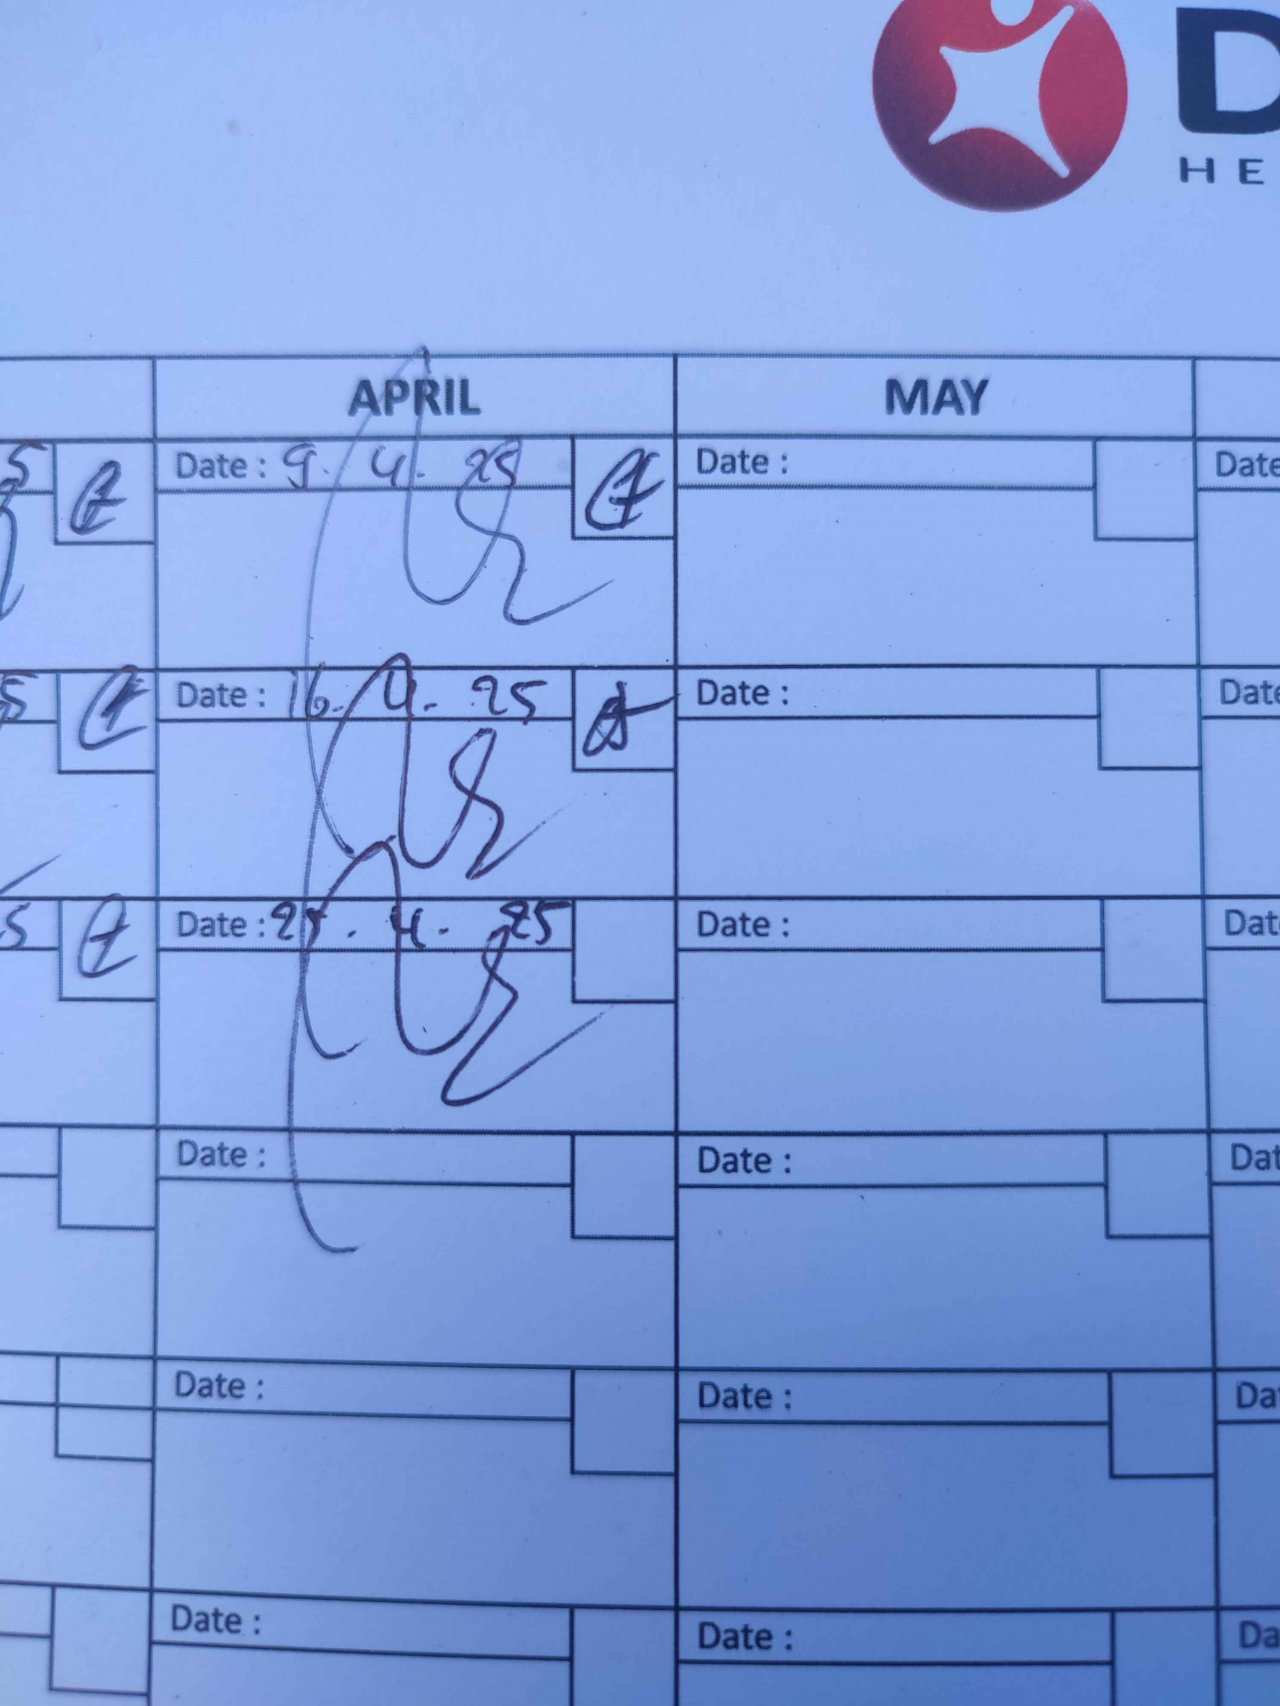 D
HE
APRIL MAY
5 Date : 9. 4. 25 Date : Date
5 Date : 16. 4. 25 Date : Date
5 Date : 4. 25 Date : Dat
Date : Date : Dat
Date : Date : Da
Date : Date : Da